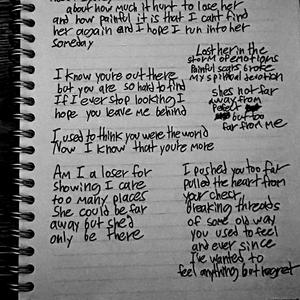 about how much it hurt to lose her
and how painful it is that I cant find
her again and I hope I run into her
someday
Lost her in the
storm of emotions
Painful scars broke
my spiritual devotion
I know you're out there
but you are so hard to find
If I ever stop looking I
hope you leave me behind
shes not far
away from
pefect
but too
far from me
I used to think you were the world
Now I know that you're more
Am I a loser for
showing I care
too many places
She could be far
away but she'd
only be there
I pushed you too far
pulled the heart from
your chest
breaking threads
of some old way
you used to feel
and ever since
I've wanted to
feel anything but regret